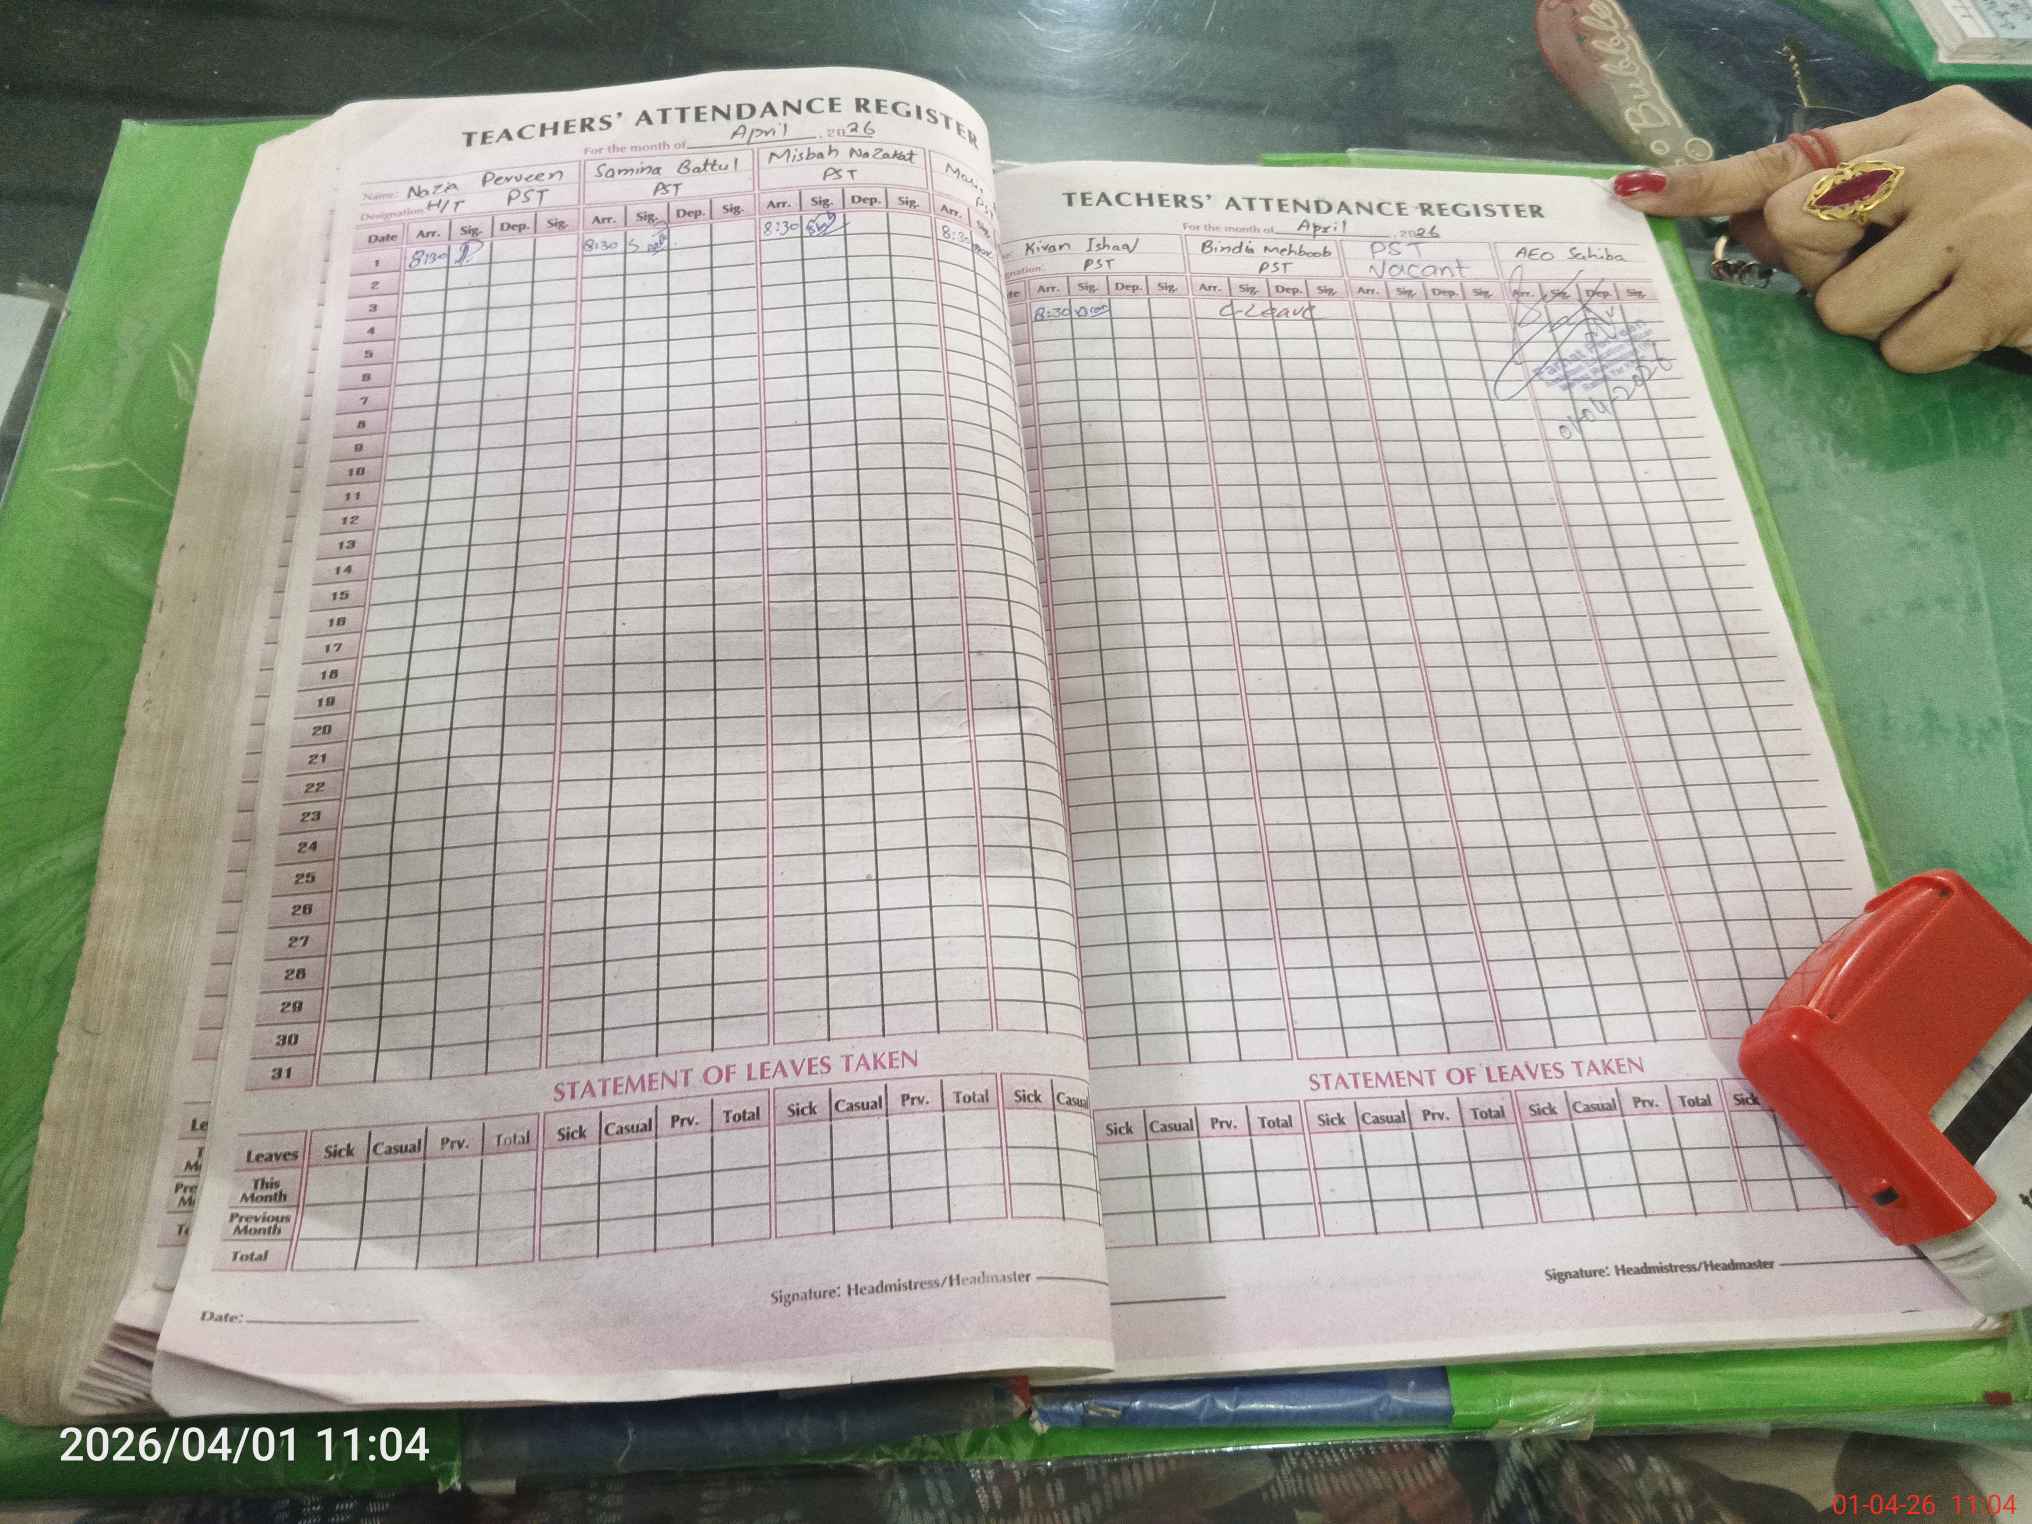 TEACHERS' ATTENDANCE REGISTER
For the month of April, 2026
Name: Nazia Perveen Samina Battul Misbah Nazakat
Designation H/T PST PST PST
Date Arr. Sig. Dep. Sig. Arr. Sig. Dep. Sig. Arr. Sig. Dep. Sig. Arr. Sig.
1 8:30 8:30 8:30 8:30
2
3
4
5
6
7
8
9
10
11
12
13
14
15
16
17
18
19
20
21
22
23
24
25
26
27
28
29
30
31
STATEMENT OF LEAVES TAKEN
Leaves Sick Casual Prv. Total Sick Casual Prv. Total Sick Casual Prv. Total Sick Casual
This Month
Previous Month
Total
Signature: Headmistress/Headmaster
Date:
TEACHERS' ATTENDANCE REGISTER
For the month of April, 2026
Kiran Ishaq Bindia Mehboob PST AEO Sahiba
PST PST Vacant
Arr. Sig. Dep. Sig. Arr. Sig. Dep. Sig. Arr. Sig. Dep. Sig. Arr. Sig. Dep. Sig.
8:30 C-Leave
01-04-2026
STATEMENT OF LEAVES TAKEN
Sick Casual Prv. Total Sick Casual Prv. Total Sick Casual Prv. Total Sick
Signature: Headmistress/Headmaster
Bubble
2026/04/01 11:04
01-04-26 11:04